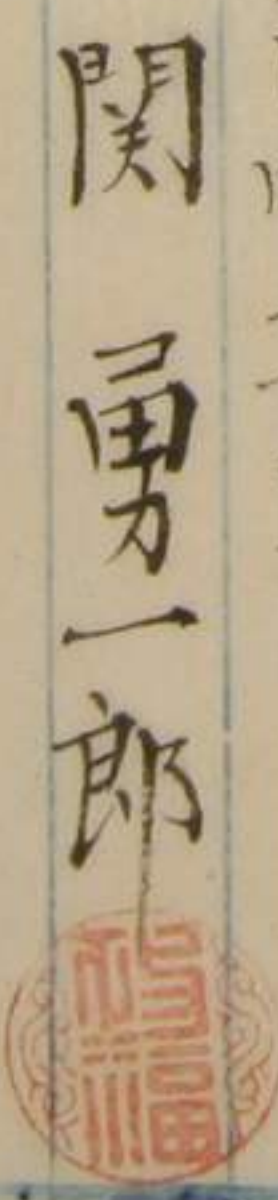 関勇一郎